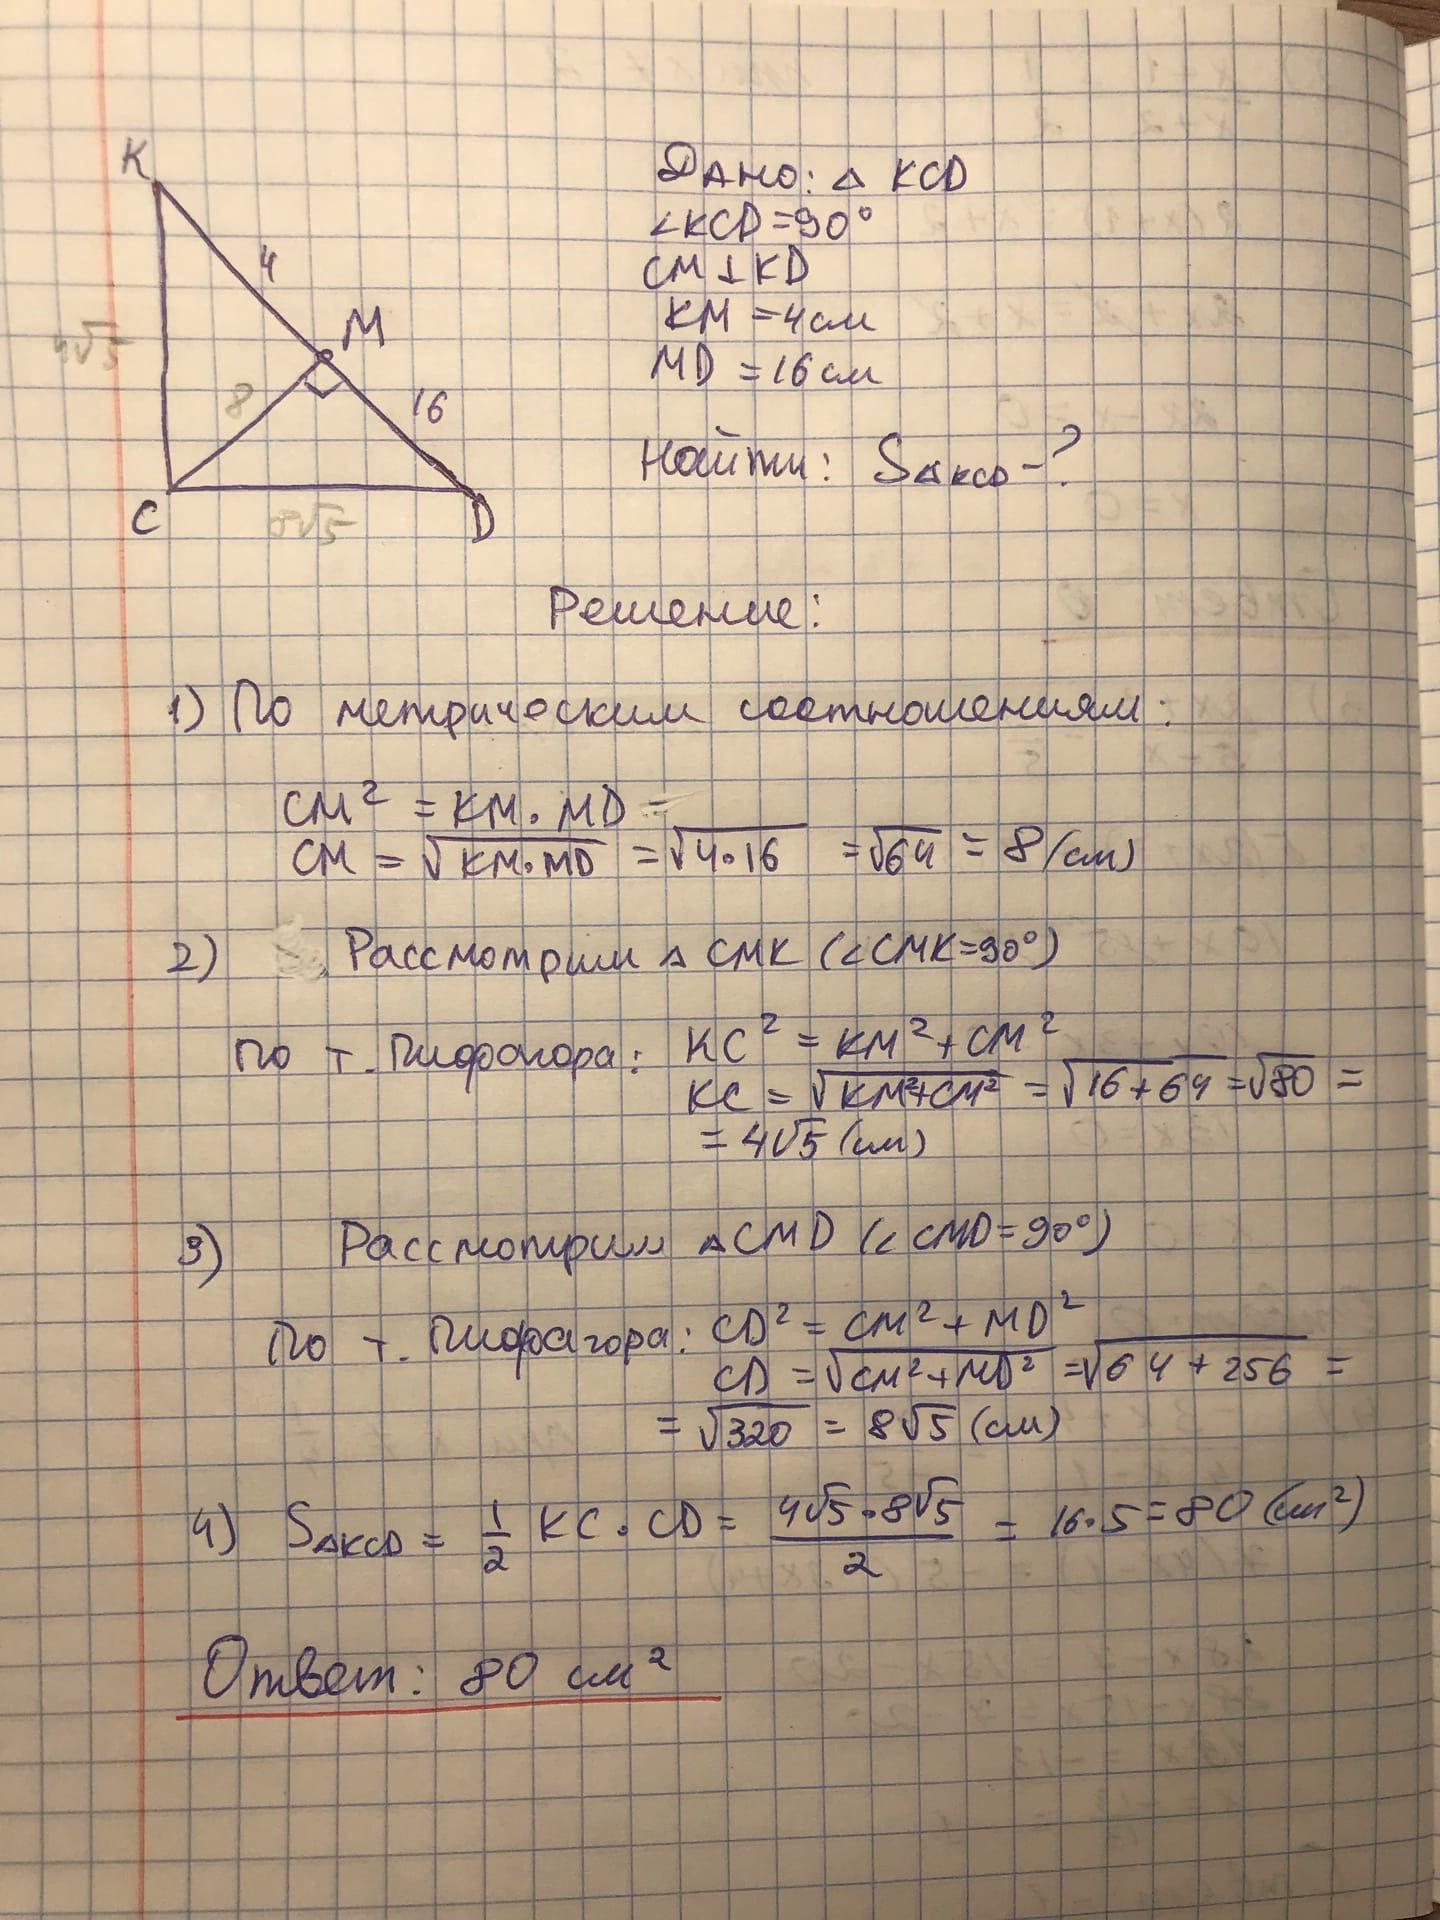 K
4
M
4√5
8
16
C
8√5
D
Дано: △ KCD
∠KCD = 90°
CM ⊥ KD
KM = 4 см
MD = 16 см
Найти: S△KCD - ?
Решение:
1) По метрическим соотношениям:
CM² = KM · MD =
CM = √KM·MD = √4·16 = √64 = 8 (см)
2) Рассмотрим △ CMK (∠CMK = 90°)
по т. Пифагора: KC² = KM² + CM²
KC = √KM²+CM² = √16+64 = √80 =
= 4√5 (см)
3) Рассмотрим △CMD (∠CMD = 90°)
По т. Пифагора: CD² = CM² + MD²
CD = √CM²+MD² = √64+256 =
= √320 = 8√5 (см)
4) S△KCD = 1/2 KC · CD = 4√5·8√5/2 = 16·5 = 80 (см²)
Ответ: 80 см²